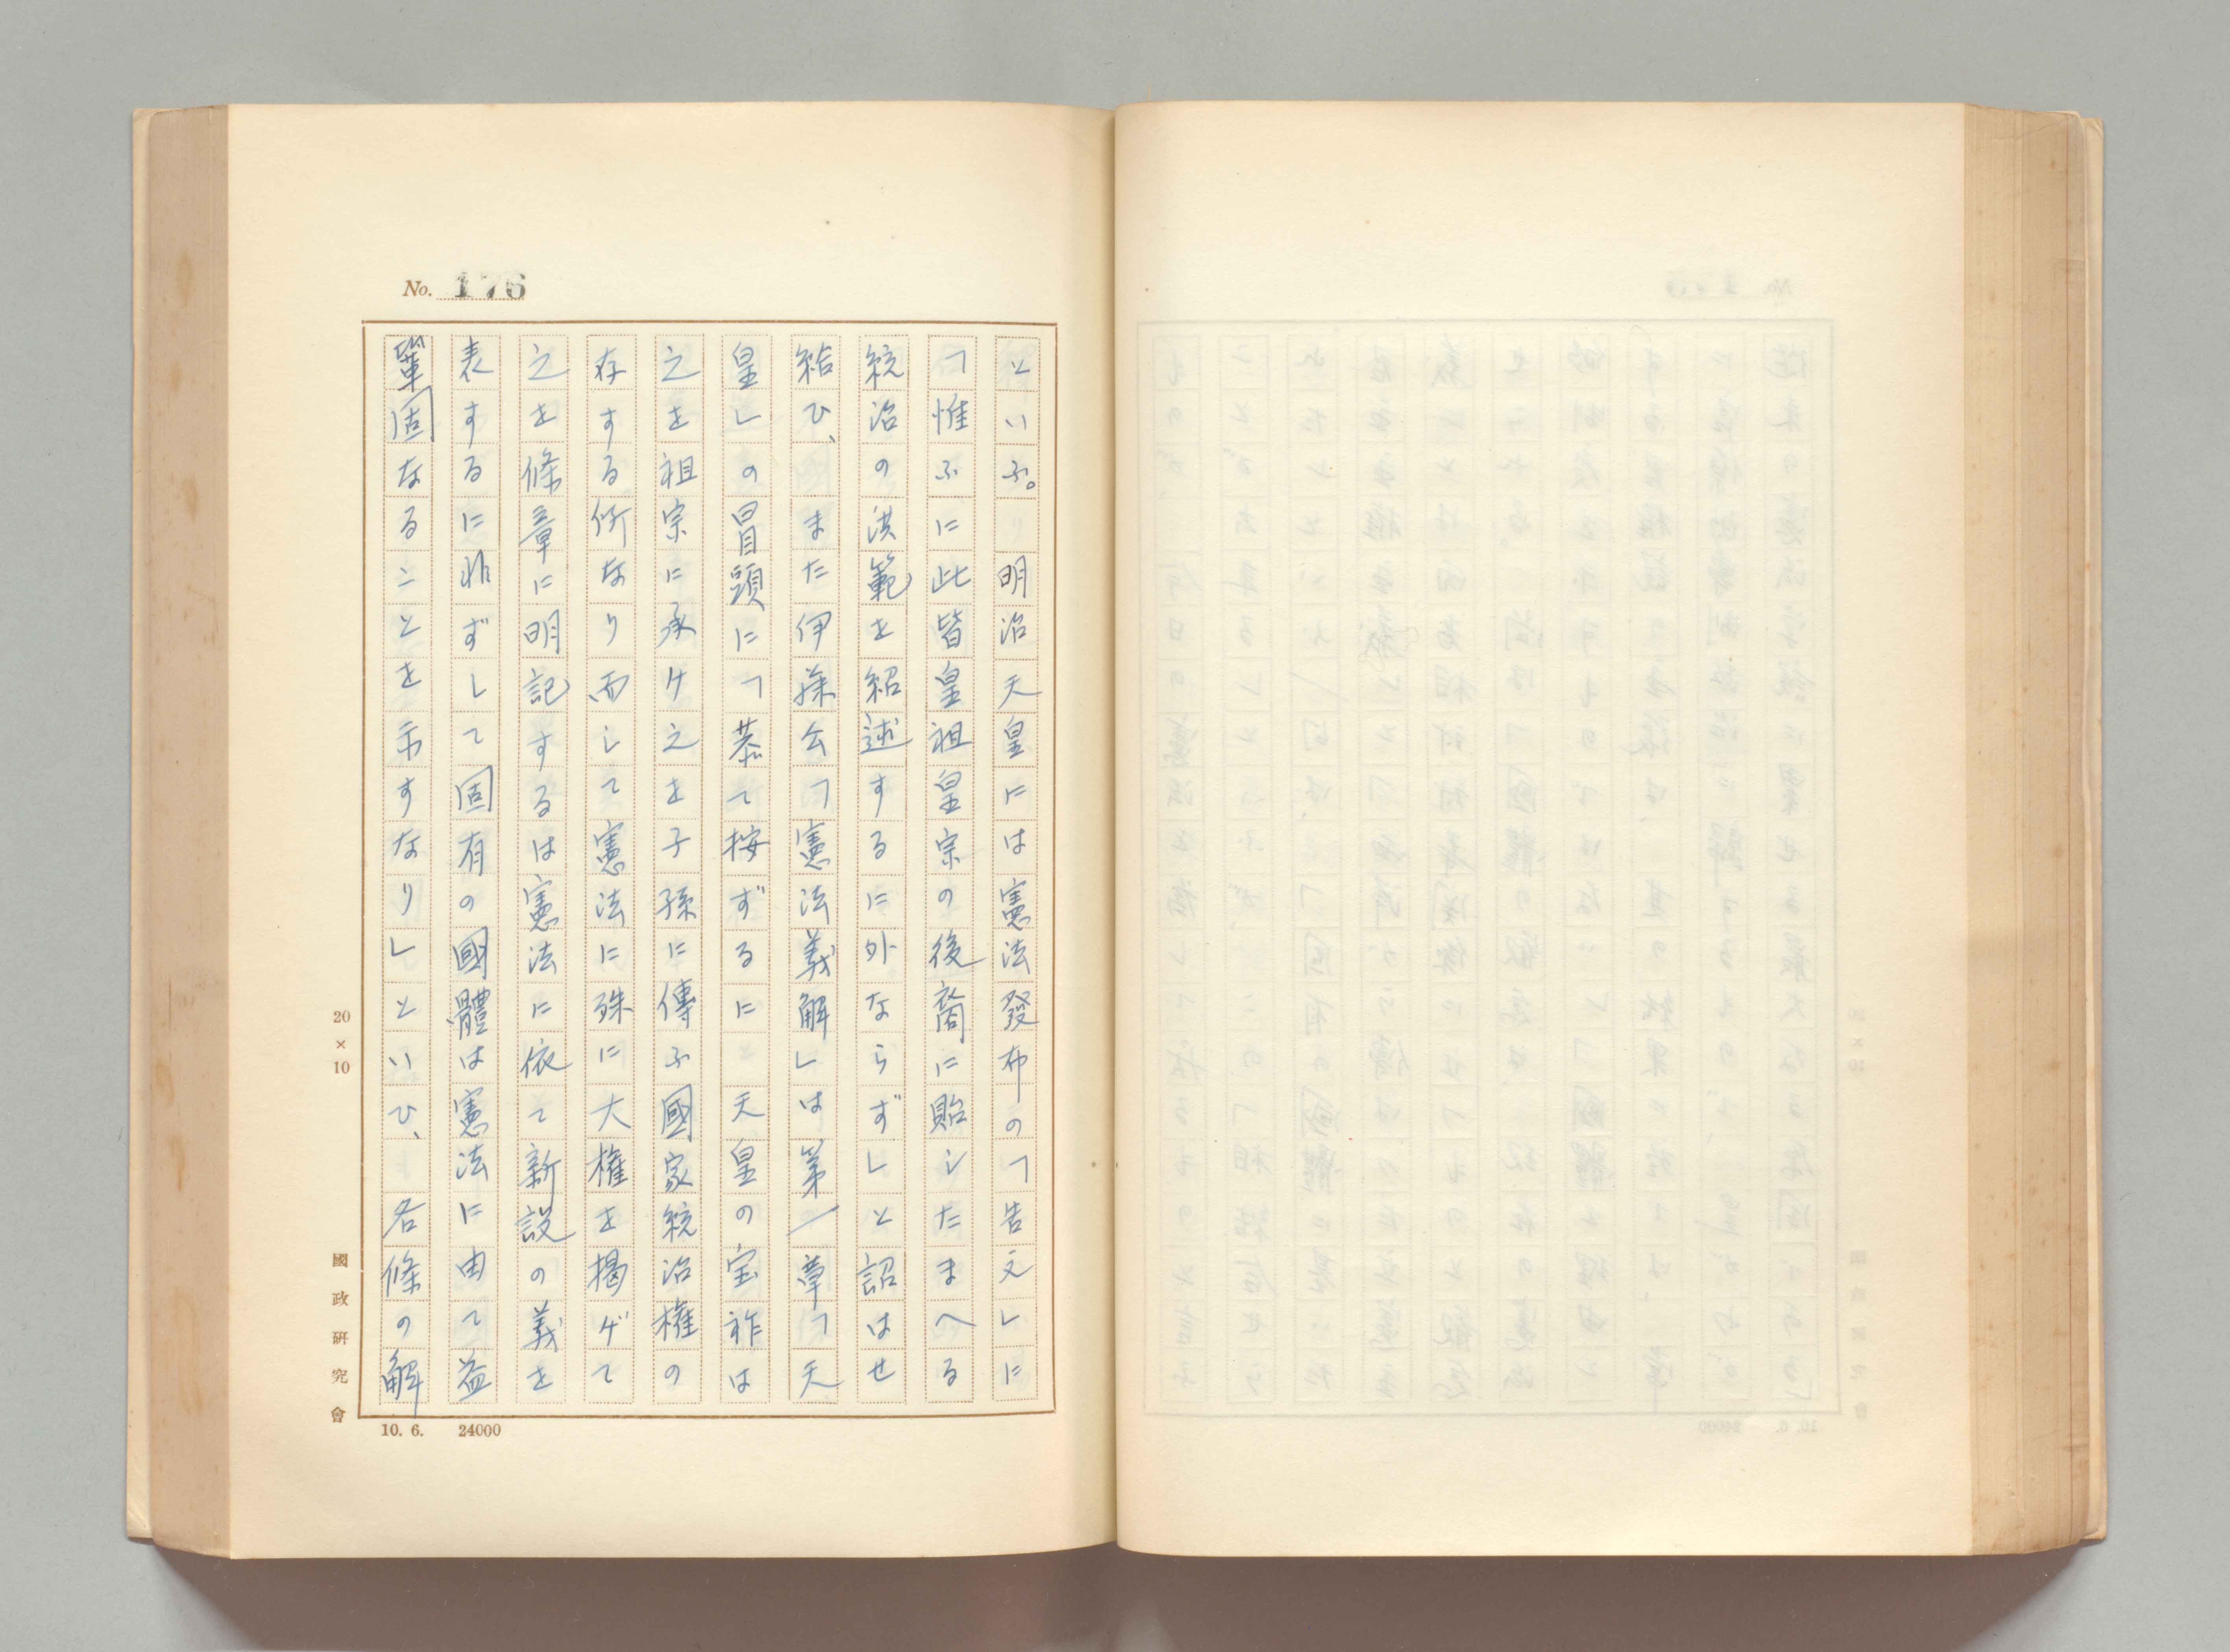 No. 176
といふ。 明治天皇には憲法發布の「告文」に
「惟ふに此皆皇祖皇宗の後裔に貽したまへる
統治の洪範を紹述するに外ならず」と詔はせ
給ひ、 また伊藤公「憲法義解」は第一章「天
皇」の冒頭に「恭て按ずるに 天皇の宝祚は
之を祖宗に承け之を子孫に傳ふ國家統治権の
存する所なり而して憲法に殊に大権を掲げて
之を條章に明記するは憲法に依て新設の義を
表するに非ずして固有の國體は憲法に由て益
鞏固なることを示すなり」といひ、 各條の解
20×10
國政研究會
10. 6. 24000